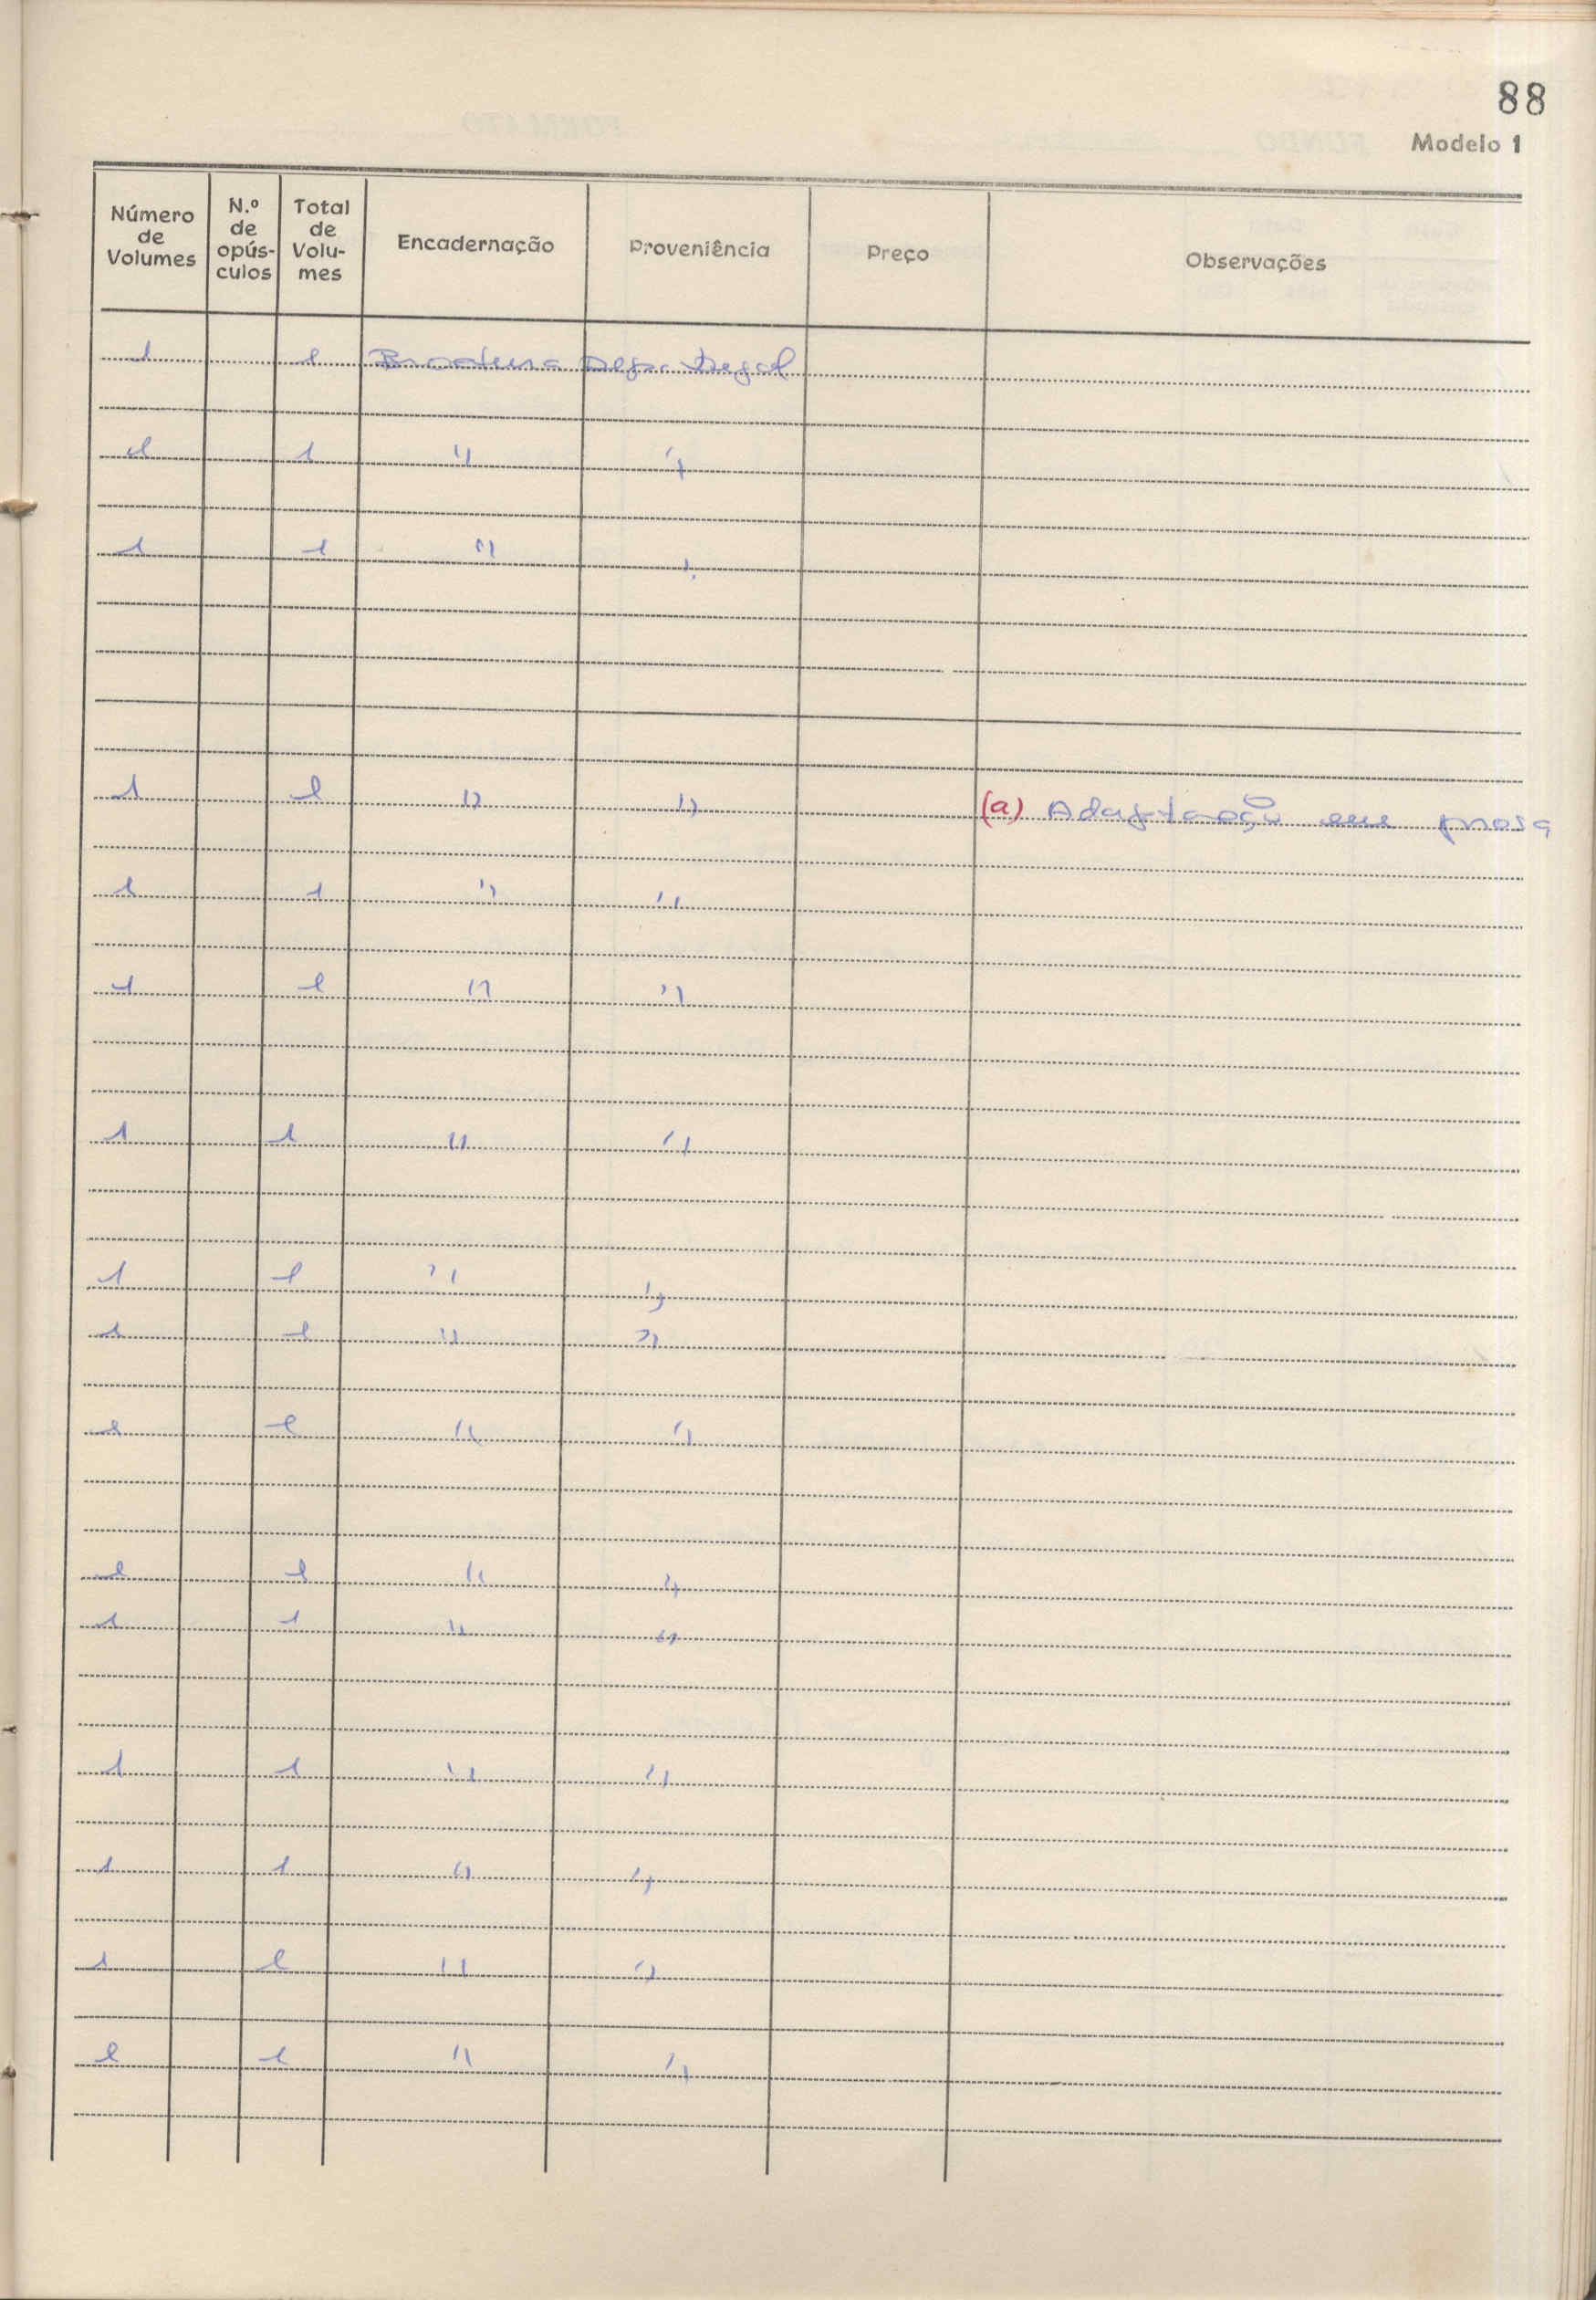 88
Modelo 1
Número de Volumes N.º de opúsculos Total de Volumes Encadernação Proveniência Preço Observações
1 1 Brochura Dep. Legal
1 1 " "
1 1 " "
1 1 " " (a) Adaptação em prosa
1 1 " "
1 1 " "
1 1 " "
1 1 " "
1 1 " "
1 1 " "
1 1 " "
1 1 " "
1 1 " "
1 1 " "
1 1 " "
1 1 " "